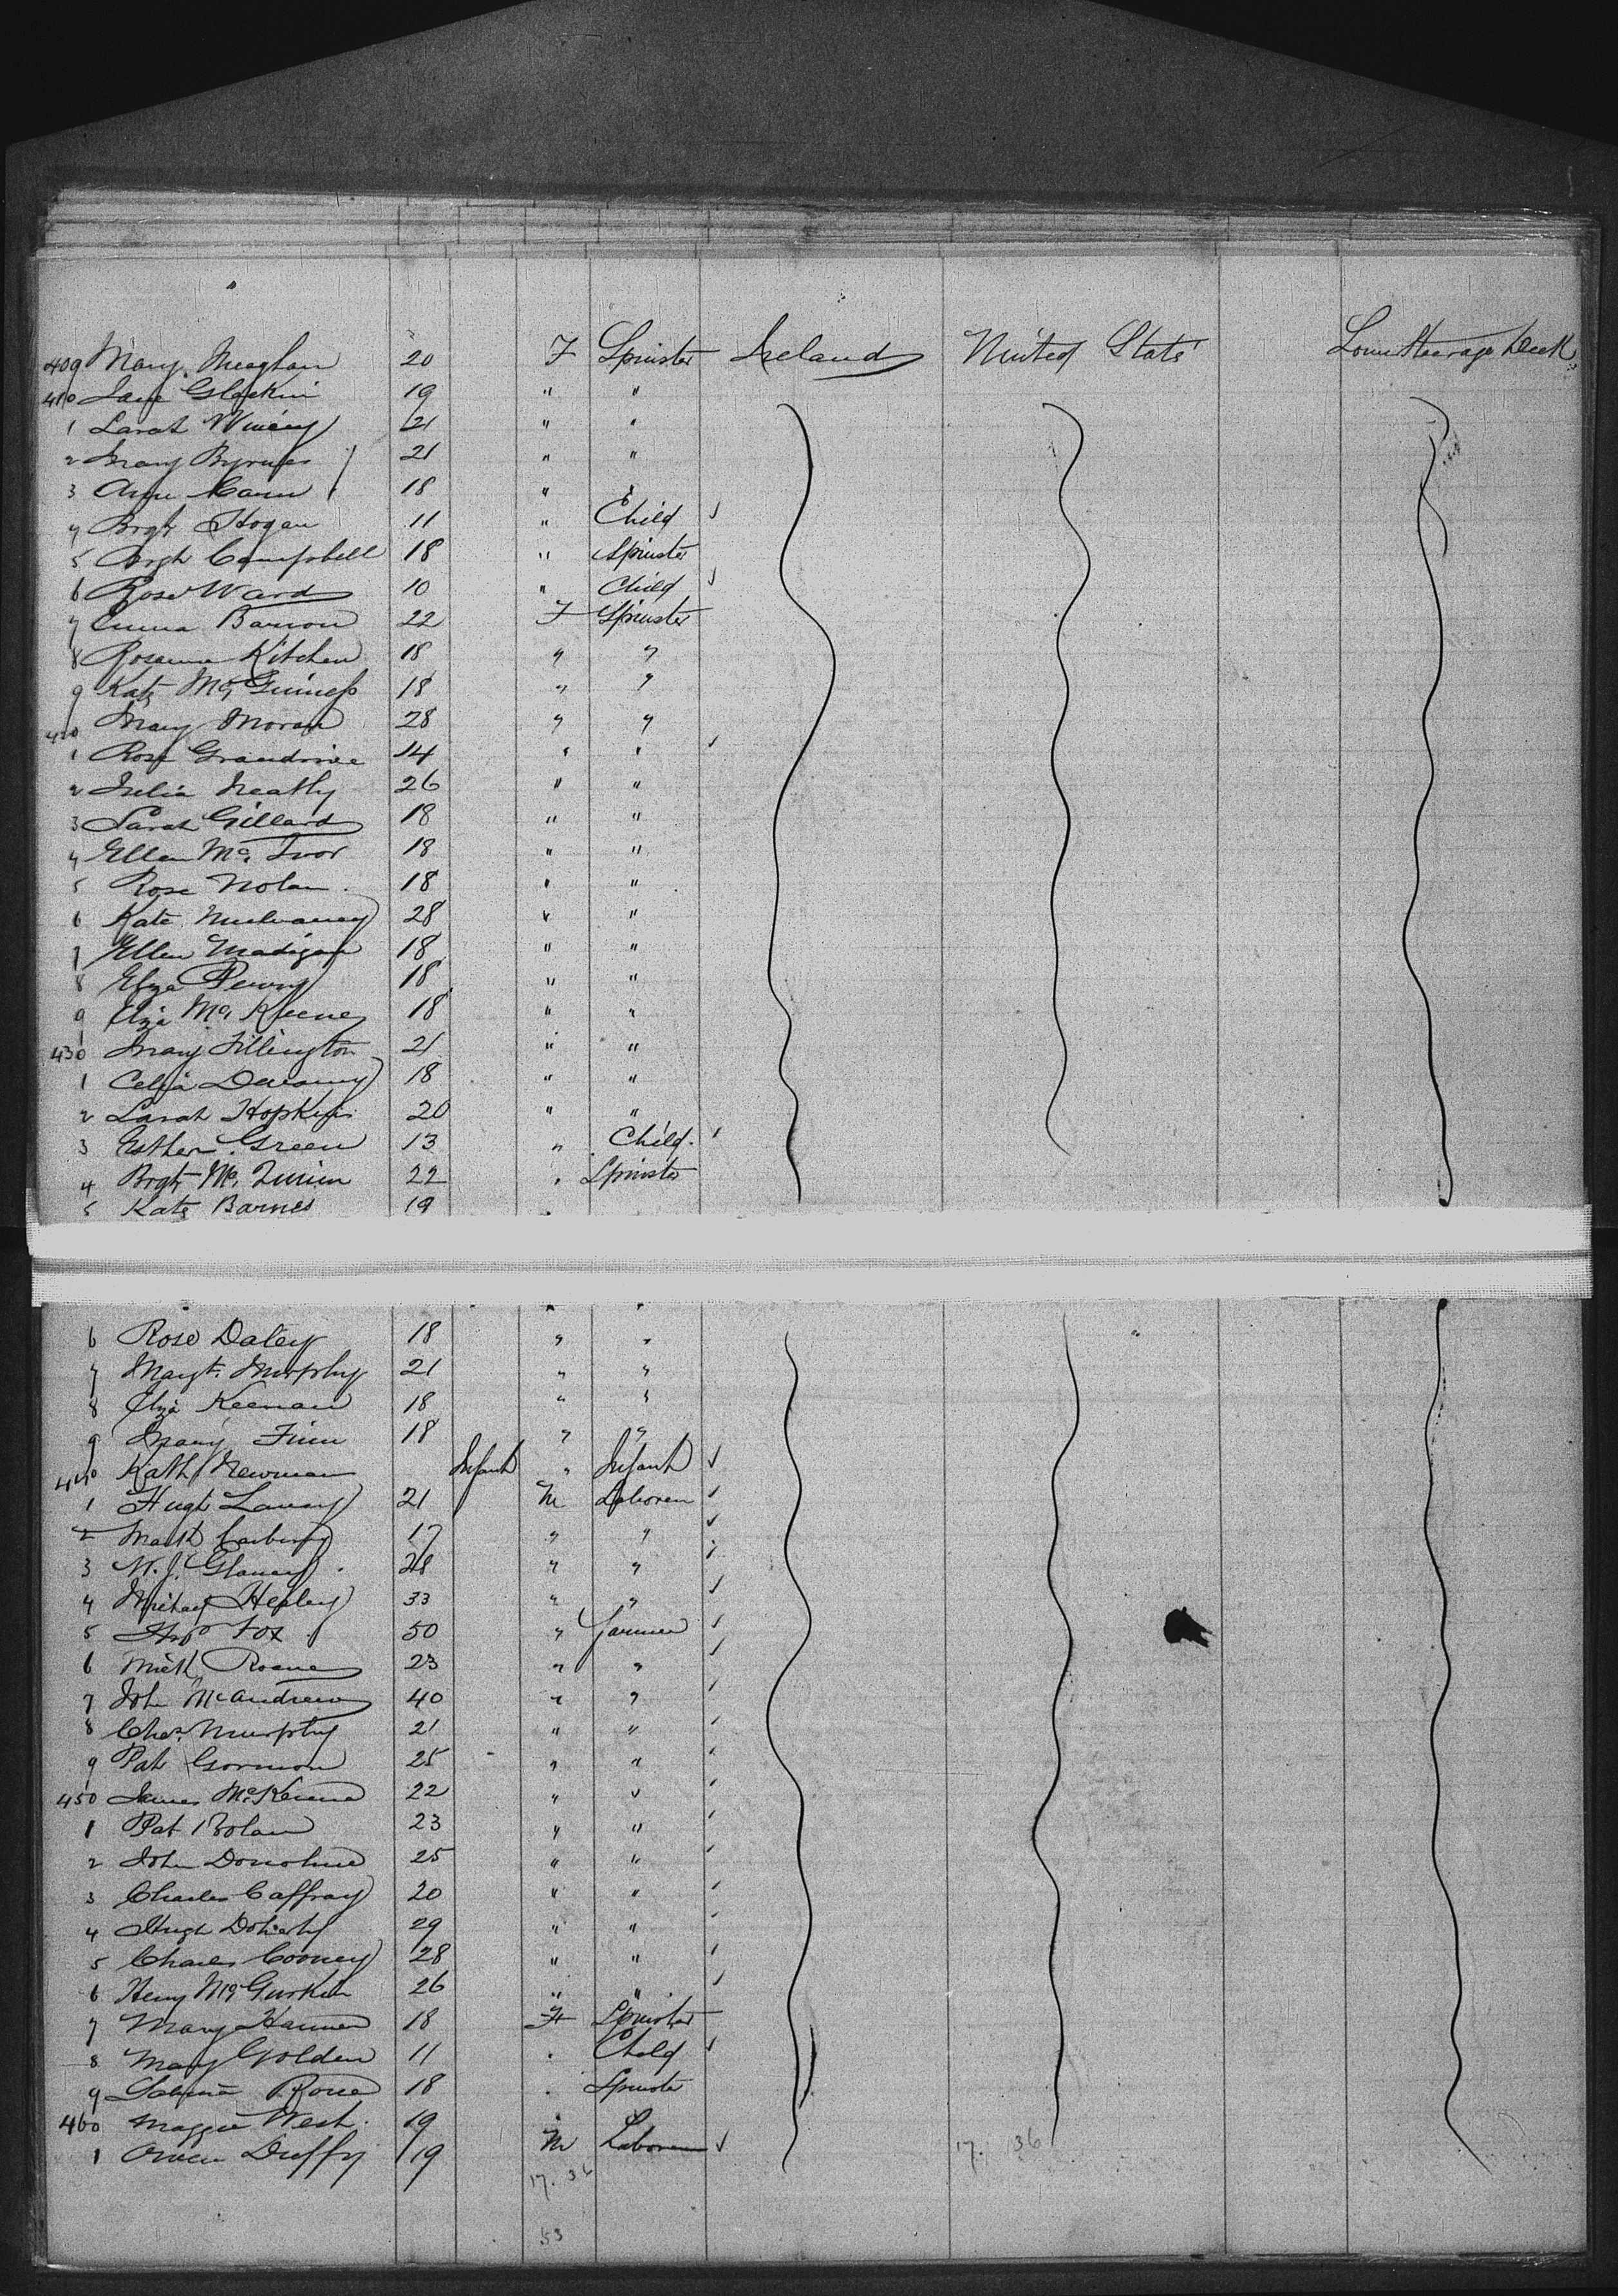 409 Mary Meaghan 20 F Spinster Ireland United States Lower Steerage Deck
410 Jane Glackin 19 " "
1 Sarah 21 " "
2 Mary Byrnes 21 " "
3 Anne 18 " "
4 Brgt Hogan 11 " Child ✓
5 Brgt Campbell 18 " Spinster
6 Rose Ward 10 " Child ✓
7 Emma Barron 22 F Spinster
8 Rosanna Kitchen 18 " "
9 Kate McGuiness 18 " "
420 Mary Moran 28 " "
1 Rose 14 " " ✓
2 Julia Neathy 26 " "
3 Sarah Gillard 18 " "
4 Ellen McIvor 18 " "
5 Rose Nolan 18 " "
6 Kate Mulvaney 28 " "
7 Ellen Madigan 18 " "
8 Eliza 18 " "
9 Eliza McKeene 18 " "
430 Mary Tillington 21 " "
1 Celia 18 " "
2 Sarah Hopkins 20 " "
3 Esther Green 13 " Child ✓
4 Brgt 22 " Spinster
5 Kate Barnes 19 "
6 Rose Daley 18 " "
7 Margt. Murphy 21 " "
8 Eliza Keenan 18 " "
9 Mary Finn 18 " "
440 Kath Newman Infant " Infant ✓
1 Hugh 21 M Laborer ✓
2 17 " " ✓
3 28 " " ✓
4 Michael 33 " " ✓
5 Thos Fox 50 " Farmer ✓
6 Mich Roane 23 " " ✓
7 John McAndrew 40 " " ✓
8 Chas. Murphy 21 " " ✓
9 Pat Gormon 25 " " ✓
450 James McKenna 22 " " ✓
1 Pat 23 " " ✓
2 John Donohue 25 " " ✓
3 Charles Caffray 20 " " ✓
4 Hugh Doherty 29 " " ✓
5 Charles Cooney 28 " " ✓
6 Henry McGurkin 26 " " ✓
7 Mary 18 F Spinster
8 Mary Golden 11 " Child ✓
9 Sabina 18 " Spinster
460 Maggie West 19 "
1 Owen Duffy 19 M Laborer ✓ 17. 36
17. 36
53